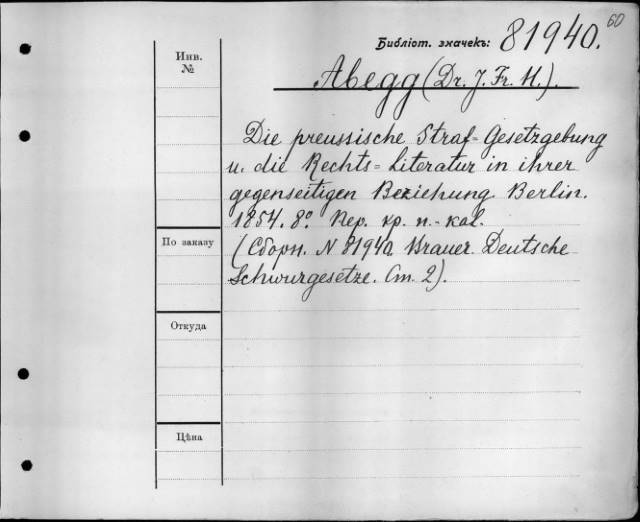 60
Библіот. значекъ: 81940.
Инв.
№
Abegg (Dr. J. Fr. H.).
Die preussische Straf=Gesetzgebung
u. die Rechts=Literatur in ihrer
gegenseitigen Beziehung. Berlin.
1854. 8º. Пер. кр. п.-кал.
По заказу
(Сборн. N 81940. Brauer. Deutsche
Schwurgesetze. Ст. 2).
Откуда
Цѣна